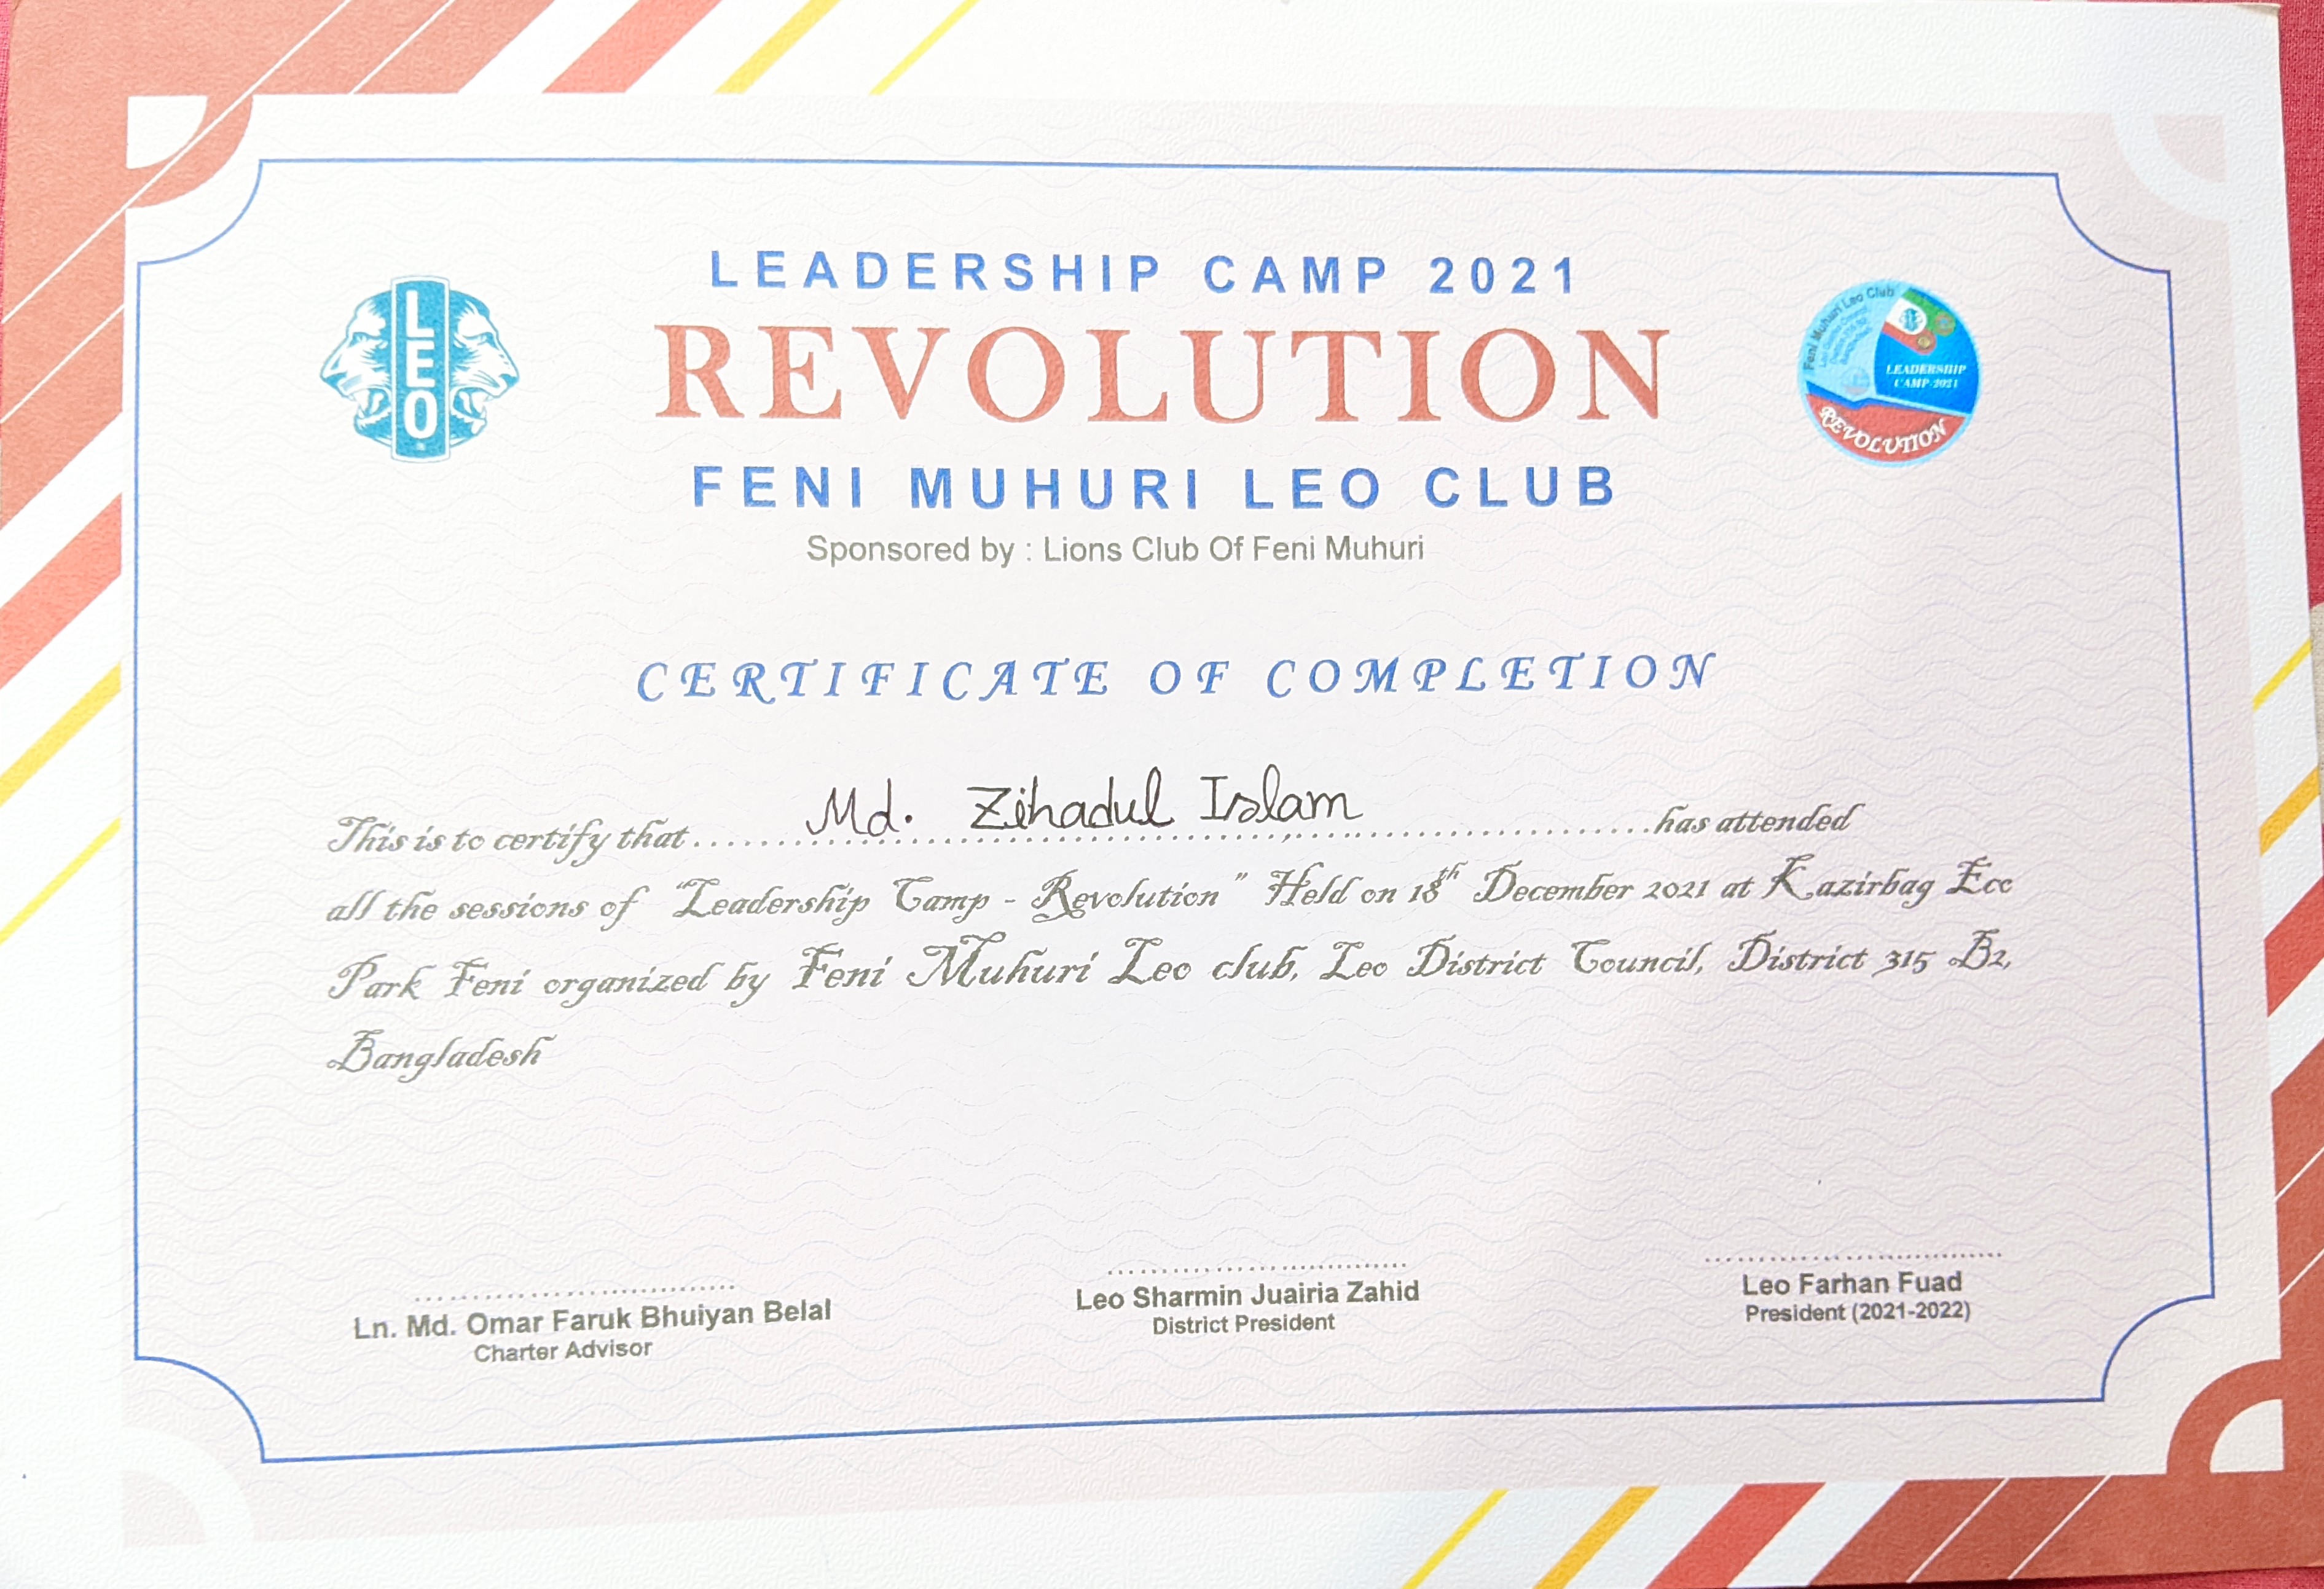 LEADERSHIP CAMP 2021
REVOLUTION
FENI MUHURI LEO CLUB
Sponsored by : Lions Club Of Feni Muhuri
LEO
Feni Muhuri Leo Club
LEADERSHIP
CAMP-2021
REVOLUTION
CERTIFICATE OF COMPLETION
This is to certify that Md. Zihadul Islam has attended
all the sessions of "Leadership Camp - Revolution" Held on 18th December 2021 at Kazirbag Eco
Park Feni organized by Feni Muhuri Leo club, Leo District Council, District 315 B2,
Bangladesh
Ln. Md. Omar Faruk Bhuiyan Belal
Charter Advisor
Leo Sharmin Juairia Zahid
District President
Leo Farhan Fuad
President (2021-2022)